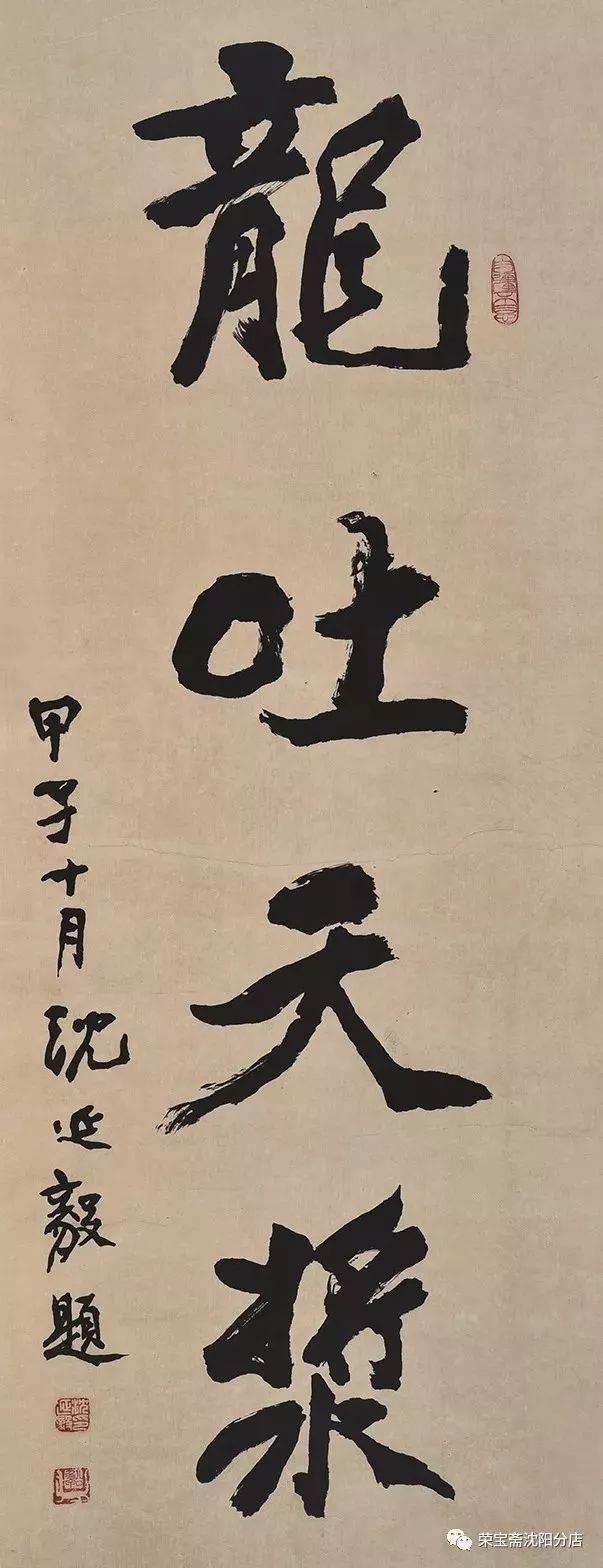 龍吐天漿
甲子十月沈延毅題
荣宝斋沈阳分店